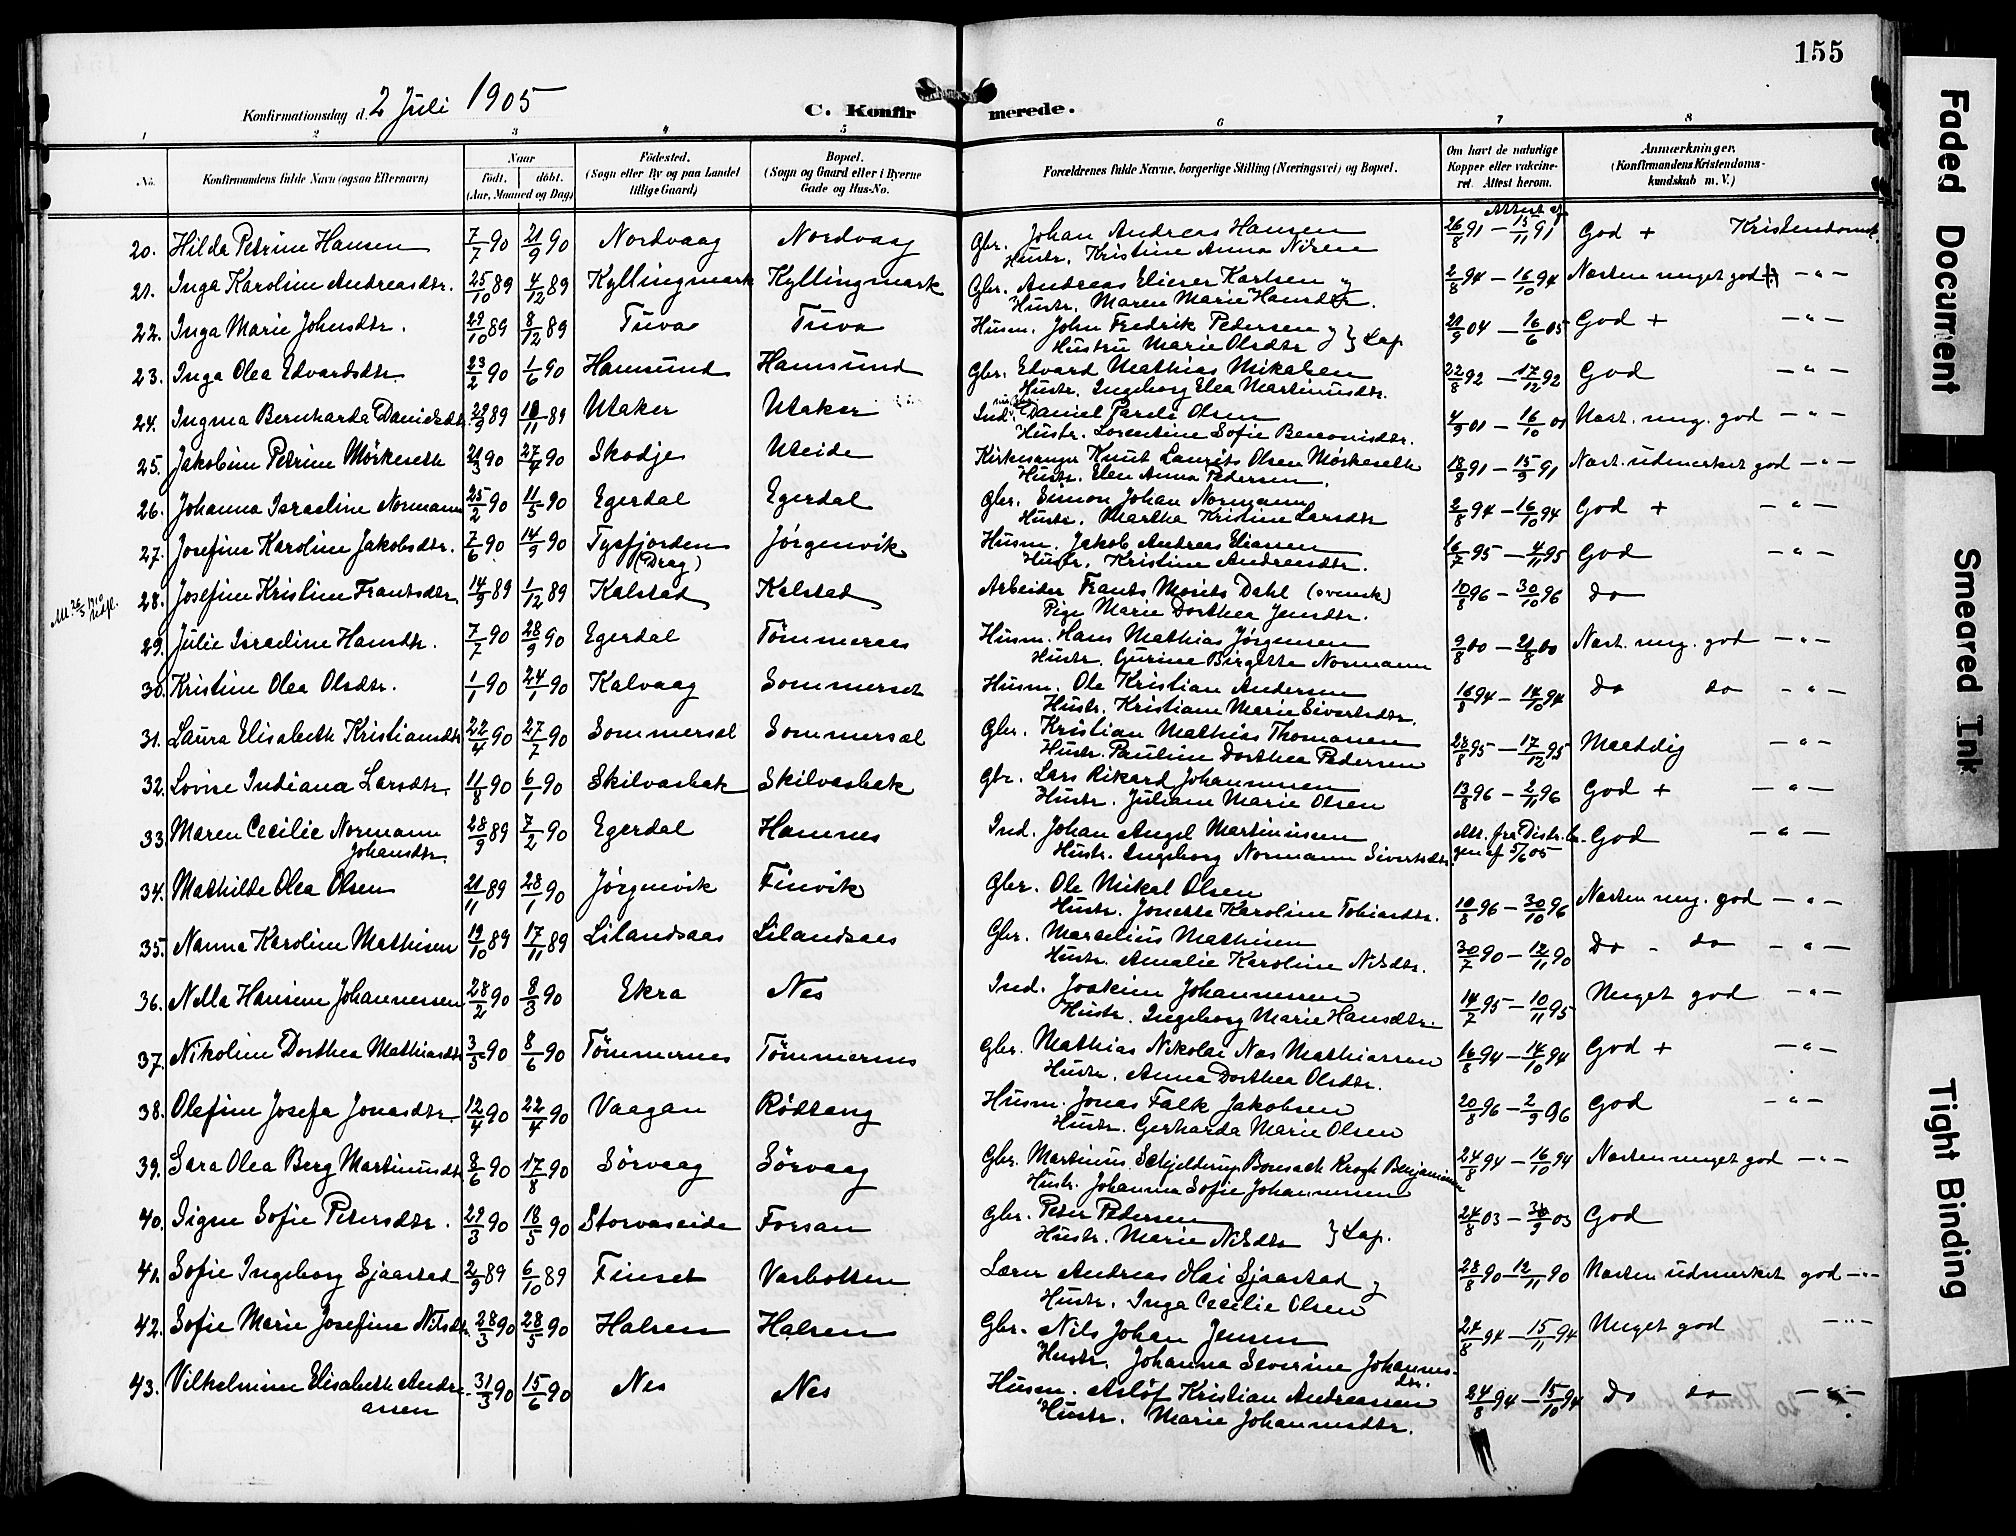 155
Konfirmationsdag d. 2 Juli 1905
C. Konfirmerede.
1 2 3 4 5 6 7 8
No. Konfirmandens fulde Navn (ogsaa Efternavn) Naar Födt. döbt. (Aar, Maaned og Dag) Födested. (Sogn eller By og paa Landet tillige Gaard) Bopæl. (Sogn og Gaard eller i Byerne Gade og Hus-No. Forældrenes fulde Navne, borgerlige Stilling (Næringsvei) og Bopæl. Om havt de naturlige Kopper eller vakcineret. Attest herom. Anmærkninger. (Konfirmandens Kristendomskundskab m. V.)
20. Hilda Petrine Hansen 7/7 90 21/9 90 Nordvaag Nordvaag Gbr. Johan Andreas Hansen 26/8 91 – Attest af 15/11 91 God + Kristendomsk.
Hustr. Kristine Anna Nilsen
21. Inga Karoline Andreasdtr. 25/10 89 4/12 89 Kyllingmark Kyllingmark Gbr. Andreas Elieser Karlsen og 2/8 94 – 16/10 94 Næsten meget god (+) – " –
Hustr. Maren Marie Hansdtr.
22. Inga Marie Johnsdtr. 29/10 89 8/12 89 Tuva Tuva Husm. John Fredrik Pedersen og } Lap 20/9 04 – 16/6 05 God + – " –
Hustru Marie Olsdtr
23. Inga Olea Edvardsdtr. 23/2 90 1/6 90 Hamsund Hamsund Gbr. Edvard Mathias Mikalsen 22/8 92 – 17/12 92 God – " –
Hustr. Ingeborg Elea Martinusdtr.
24. Ingma Bernharda Danielsdtr. 29/9 89 10/11 89 Utaker Utaker Ind. Daniel Pareli Olsen 4/9 01 – 16/10 01 Næst. meg. god – " –
Hustr. Lorentine Sofie Benonisdtr.
25. Jakobine Petrine Mörkeseth 21/3 90 27/4 90 Skodje Uteide Kirkesanger Knut Laurits Olsen Mörkeseth 18/8 91 – 15/9 91 Næst. udmerket god – " –
Hustr. Elen Anna Pedersen.
26. Johanna Israeline Normann 25/2 90 11/5 90 Egerdal Egerdal Gbr. Simon Johan Normann 2/8 94 – 16/10 94 God + – " –
Hustr. Martha Kristine Larsdtr
27. Josefine Karoline Jakobsdtr. 7/6 90 14/9 90 Tysfjorden (Drag) Jörgenvik Husm. Jakob Andreas Eliassen 16/7 95 – 4/11 95 God – " –
Hustr. Kristine Andreasdtr.
28. Josefine Kristine Frantsdtr. 14/9 89 1/12 89 Kalstad Kalstad Arbeider Frants Morits Dahl (svensk) 10/8 96 – 30/10 96 do
Pige Marie Dorthea Jensdtr.
29. Julie Israeline Hansdtr. 7/7 90 28/9 90 Egerdal Tömmeraas Husm. Hans Mathias Jörgensen 9/8 00 – 21/8 00 Næst. meg. god – " –
Hustr. Gurine Birgitte Normann
30. Kristine Olea Olsdtr. 1/1 90 24/1 90 Kalvaag Sommerset Husm. Ole Kristian Andersen 16/8 94 – 14/10 94 do do – " –
Hustr. Kristiane Marie Sivertsdtr.
31. Laura Elisabeth Kristiansdtr 22/4 90 27/7 90 Sommersel Sommersel Gbr. Kristian Mathias Thomassen 28/8 95 – 17/12 95 Maadelig – " –
Hustr. Pauline Dorthea Pedersen
32. Lovise Indiana Larsdtr. 11/8 90 6/1 90 Skilvasbak Skilvasbak Gbr. Lars Rikard Johannessen 13/8 96 – 2/11 96 God + – " –
Hustr. Juliane Marie Olsen
33. Maren Cecilie Normann 28/9 89 7/2 90 Egerdal Hamnes Ind. Johan Angel Martinussen Att. fra Distr.læ- God – " –
Johansdtr. Hustr. Ingeborg Normann Sivertsdtr. gen af 5/6 05
34. Mathilde Olea Olsen 21/11 89 28/1 90 Jörgenvik Finvik Gbr. Ole Mikal Olsen 10/8 96 – 30/10 96 Næsten meg. god – " –
Hustr. Jonette Karoline Tobiasdtr.
35. Nanna Karoline Mathisen 19/10 89 17/11 89 Lilandsaas Lilandsaas Gbr. Marselius Mathisen 30/7 90 – 12/11 90 Do – do – " –
Hustr. Amalie Karoline Nilsdtr.
36. Nella Hansine Johannessen 28/2 90 8/3 90 Ekra Nes Ind. Joakim Johannessen 14/7 95 – 10/11 95 Meget god – " –
Hustr. Ingeborg Marie Hansdtr.
37. Nikoline Dorthea Mathiasdtr 3/5 90 8/6 90 Tömmernes Tömmernes Gbr. Mathias Nikolai Nas Mathiassen 16/8 94 – 14/10 94 God + – " –
Hustr. Anna Dorthea Olsdtr.
38. Olefine Josefa Jonasdtr. 12/4 90 22/4 90 Vaagan Rödtang Husm. Jonas Falk Jakobsen 20/8 96 – 2/9 96 God – " –
Hustr. Gerharda Marie Olsen
39. Sara Olea Berg Martinusdtr 8/6 90 17/8 90 Sörvaag Sörvaag Gbr. Martinus Schjelderup Bonsach Krogh Benjaminsen 24/8 94 – 16/10 94 Næsten meget god – " –
Hustr. Johanna Sofie Johannessen
40. Signe Sofie Petersdtr. 29/3 90 18/5 90 Storvaseide Forsan Gbr. Peter Pedersen } Lap. 24/8 03 – 30/9 03 God
Hustr. Marie Nilsdtr
41. Sofie Ingeborg Sjaastad 2/9 89 6/10 89 Finset Vasbotten Lærer Andreas Moi Sjaastad og 28/8 90 – 12/11 90 Næsten udmerket god – " –
Hustr. Inga Cecilie Olsen
42. Sofie Marie Josefine Nilsdtr. 28/3 90 28/5 90 Halsen Halsen Gbr. Nils Johan Jensen 24/8 94 – 15/11 94 Meget god – " –
Hustr. Johanna Severine Johannes-
dtr.
43. Vilhelmine Elisabeth Andre- 31/3 90 15/6 90 Nes Nes Husm. Adolf Kristian Andreassen 24/8 94 – 15/10 94 Do do – " –
assen Hustr. Marie Johannesdtr.
Faded Document
Smeared Ink
Tight Binding